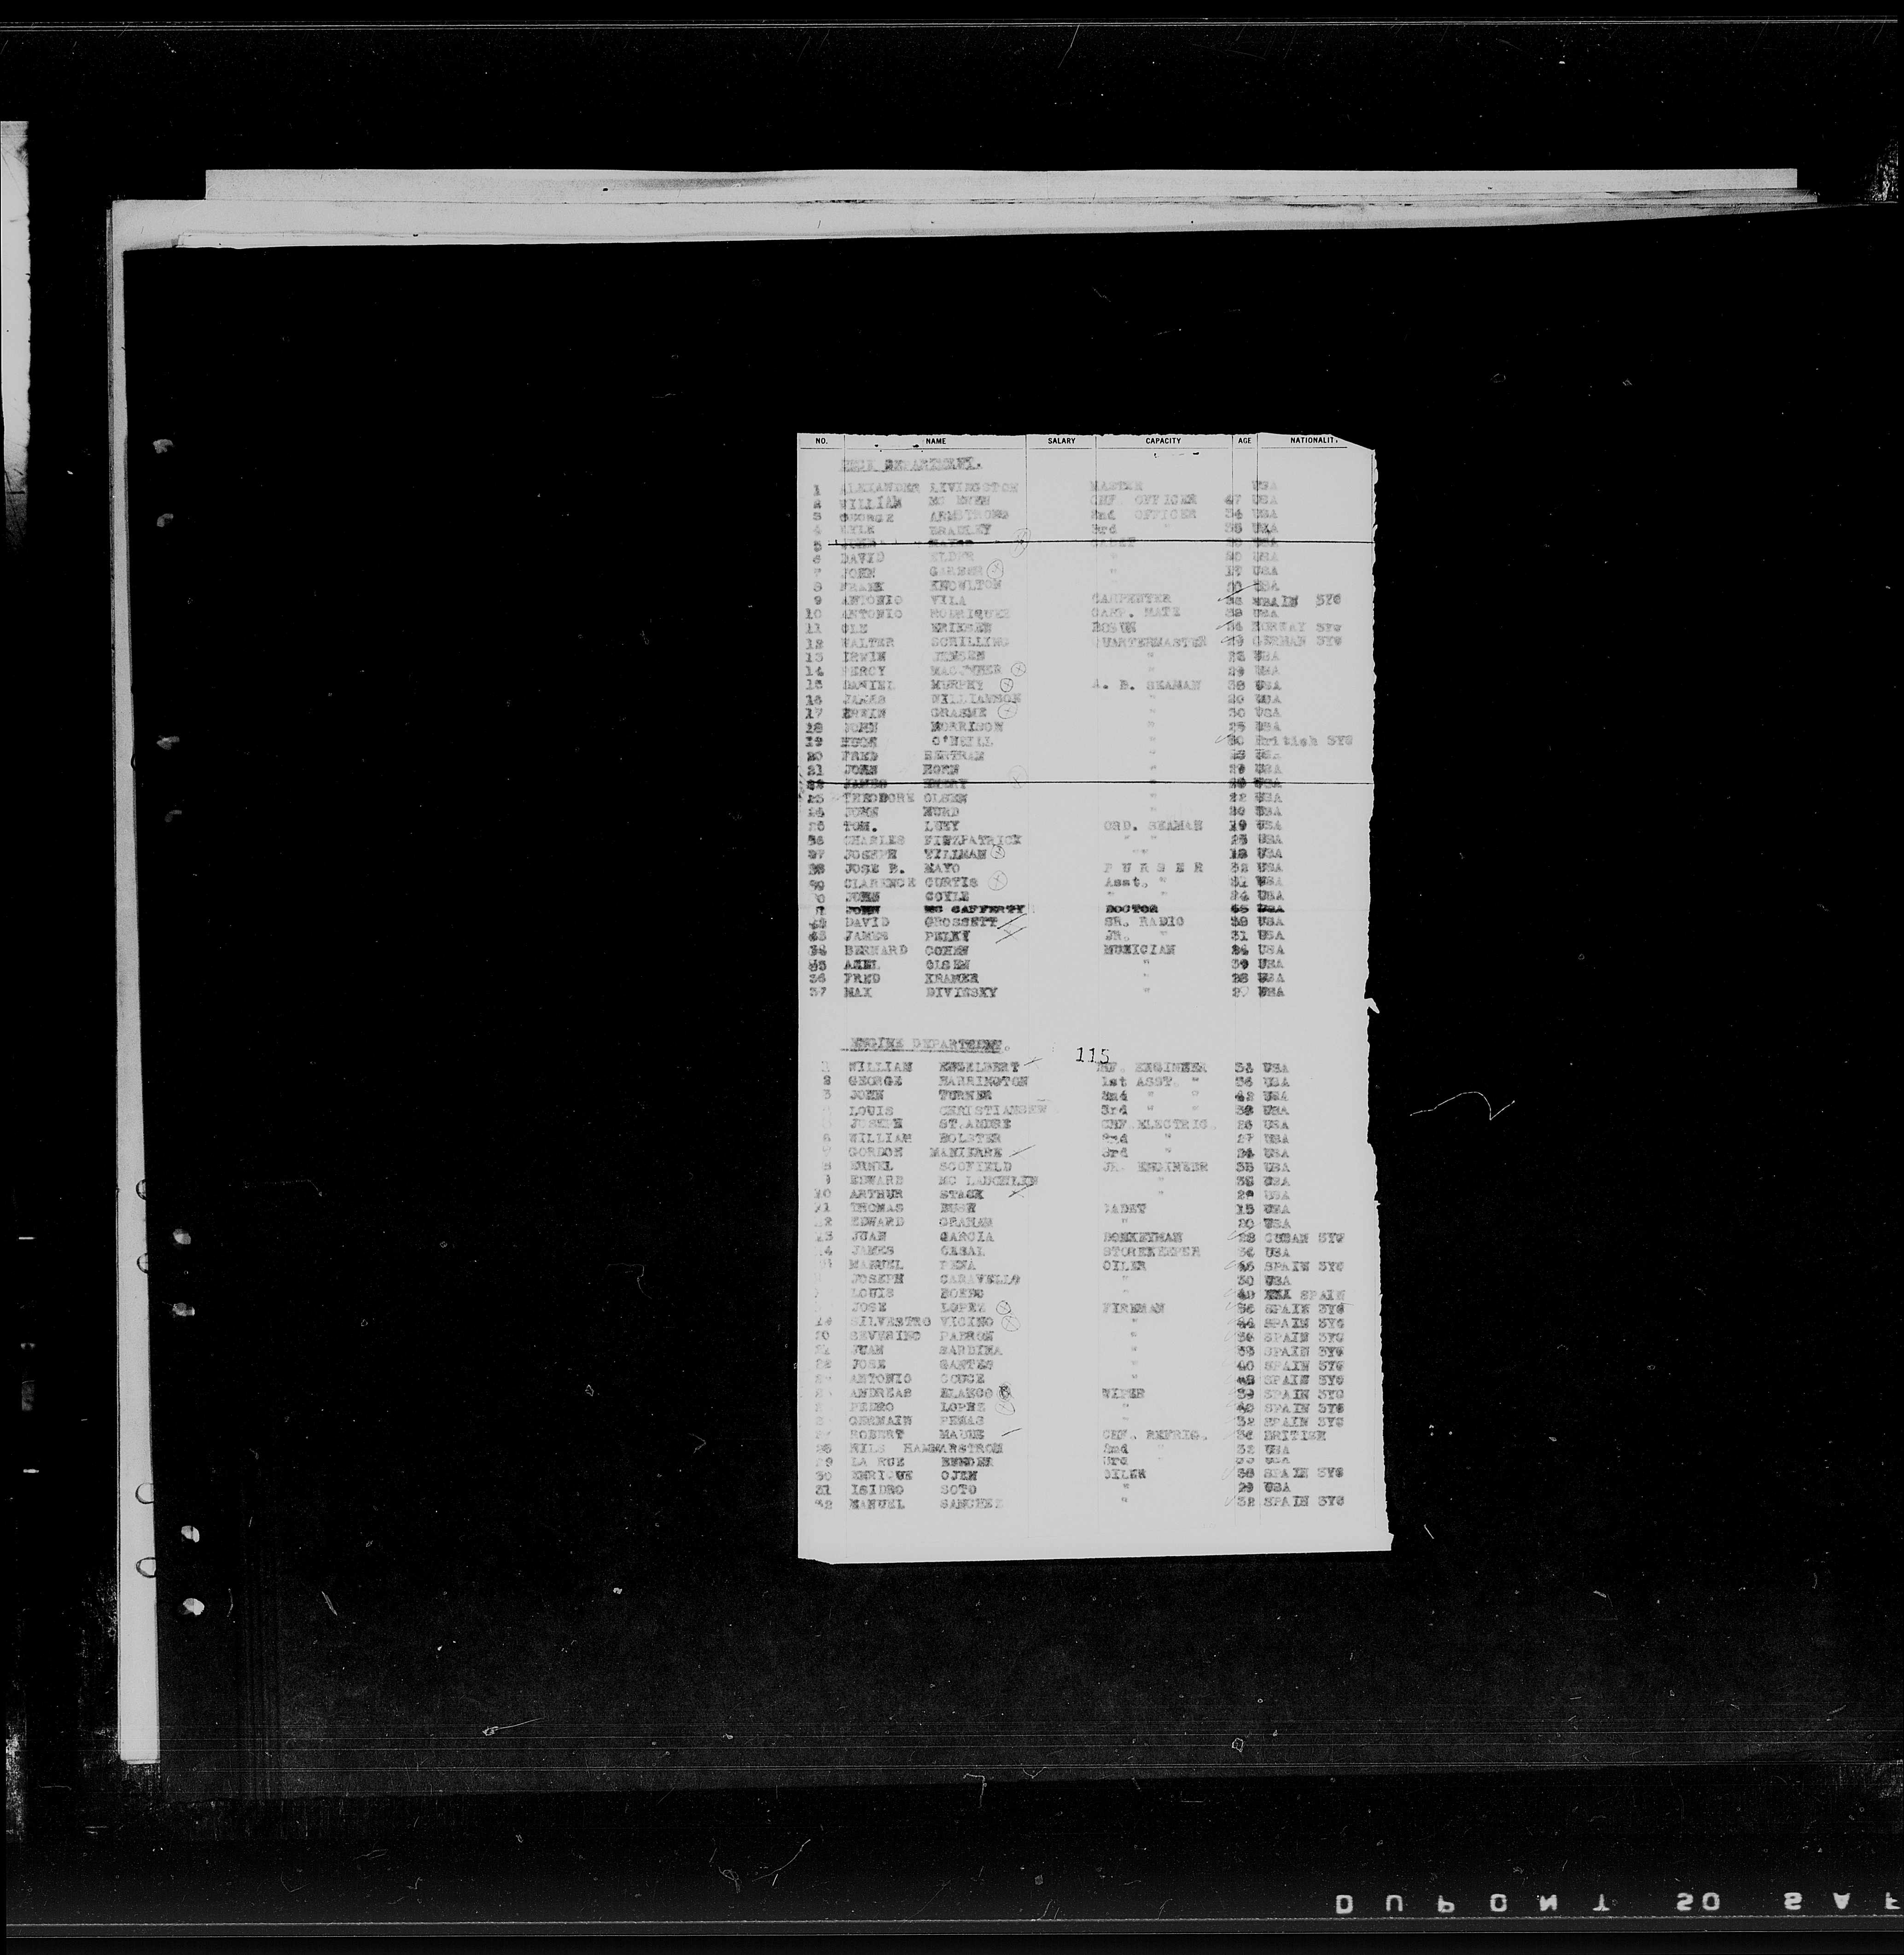 NO. NAME SALARY CAPACITY AGE NATIONALITY
DECK DEPARTMENT.
1 ALEXANDER LIVINGSTON MASTER USA
2 WILLIAM MC EWEN CHF. OFFICER 47 USA
3 GEORGE ARMSTRONG 2nd OFFICER 34 USA
4 LYLE BRADLEY 3rd " 35 USA
5 JOHN CADET USA
6 DAVID ELDER " 20 USA
7 JOHN GARBER " 17 USA
8 FRANK KNOWLTON 20 USA
9 ANTONIO VILA CARPENTER 38 SPAIN SYG
10 ANTONIO RODRIQUEZ CARP. MATE 38 USA
11 OLE ERIKSEN BOSUN 34 NORWAY SYG
12 WALTER SCHILLING QUARTERMASTER 29 GERMAN SYG
13 IRWIN JENSEN " 28 USA
14 PERCY " 29 USA
15 DANIEL MURPHY A. B. SEAMAN 38 USA
16 JAMES WILLIAMSON " 20 USA
17 ERWIN GRASME " 30 USA
18 JOHN MORRISON " 25 USA
19 HUGH O'NEILL " 30 British SYG
20 FRED BERTRAM USA
21 JOHN HORN " 29 USA
22 JAMES EMERY " USA
23 THEODORE OLSEN " 22 USA
24 JOHN HURD " 20 USA
25 TOM. LUBY ORD. SEAMAN 19 USA
26 CHARLES FITZPATRICK " " 23 USA
27 JOSEPH TILLMAN "" 18 USA
28 JOSE B. MAYO P U R S E R 32 USA
29 CLARENCE CURTIS Asst. " 31 USA
30 JOHN COYLE " " 24 USA
31 JOHN MC CAFFERTY DOCTOR 65 USA
32 DAVID GROSSETT SR. RADIO 38 USA
33 JAMES PELKY JR. " 31 USA
34 BERNARD COHEN MUSICIAN 24 USA
35 AXEL OLSEN " 39 USA
36 FRED KRAMER 28 USA
37 MAX DIVINSKY " USA
ENGINE DEPARTMENT. 115
1 WILLIAM ENGELBERT CHF. ENGINEER 54 USA
2 GEORGE HARRINGTON 1st ASST. " 36 USA
3 JOHN TURNER 2nd " " 42 USA
LOUIS CHRISTIANSEN 3rd " " 38 USA
JOSEPH ST.ANDRE CHF.ELECTRIC. 26 USA
6 WILLIAM BOLSTER 2nd " 27 USA
7 GORDON MANIERRE 3rd " 24 USA
8 ERNEL SCOFIELD JR. ENGINEER 35 USA
9 EDWARD MC LAUGHLIN " 35 USA
10 ARTHUR STACK " USA
11 THOMAS BUSH CADET USA
12 EDWARD GRAHAM " 20 USA
13 JUAN GARCIA DONKEYMAN 28 CUBAN SYG
14 JAMES CASAL STOREKEEPER 34 USA
MANUEL PENA OILER 46 SPAIN SYG
JOSEPH CARAVELLO " 30 USA
LOUIS " 49 SPAIN
JOSE LOPEZ FIREMAN 36 SPAIN SYG
19 SILVESTRO VICINO " 44 SPAIN SYG
20 SEVERINO PADRON " 36 SPAIN SYG
21 JUAN SARDINA " 35 SPAIN SYG
22 JOSE SANTES " 40 SPAIN SYG
ANTONIO COUCE " 48 SPAIN SYG
ANDREAS BLANCO WIPER 39 SPAIN SYG
PEDRO LOPEZ " 40 SPAIN SYG
GERMAIN PENAS " 32 SPAIN SYG
27 ROBERT MAUGE CHF. REFRIG. 34 BRITISH
28 NILS HAMMARSTROM 2nd " 32 USA
29 LA RUE BENDER 3rd USA
30 ENRIQUE OJEN OILER 38 SPAIN SYG
31 ISIDRO SOTO " 29 USA
32 MANUEL SANCHEZ " 32 SPAIN SYG
DUPONT SO SAF